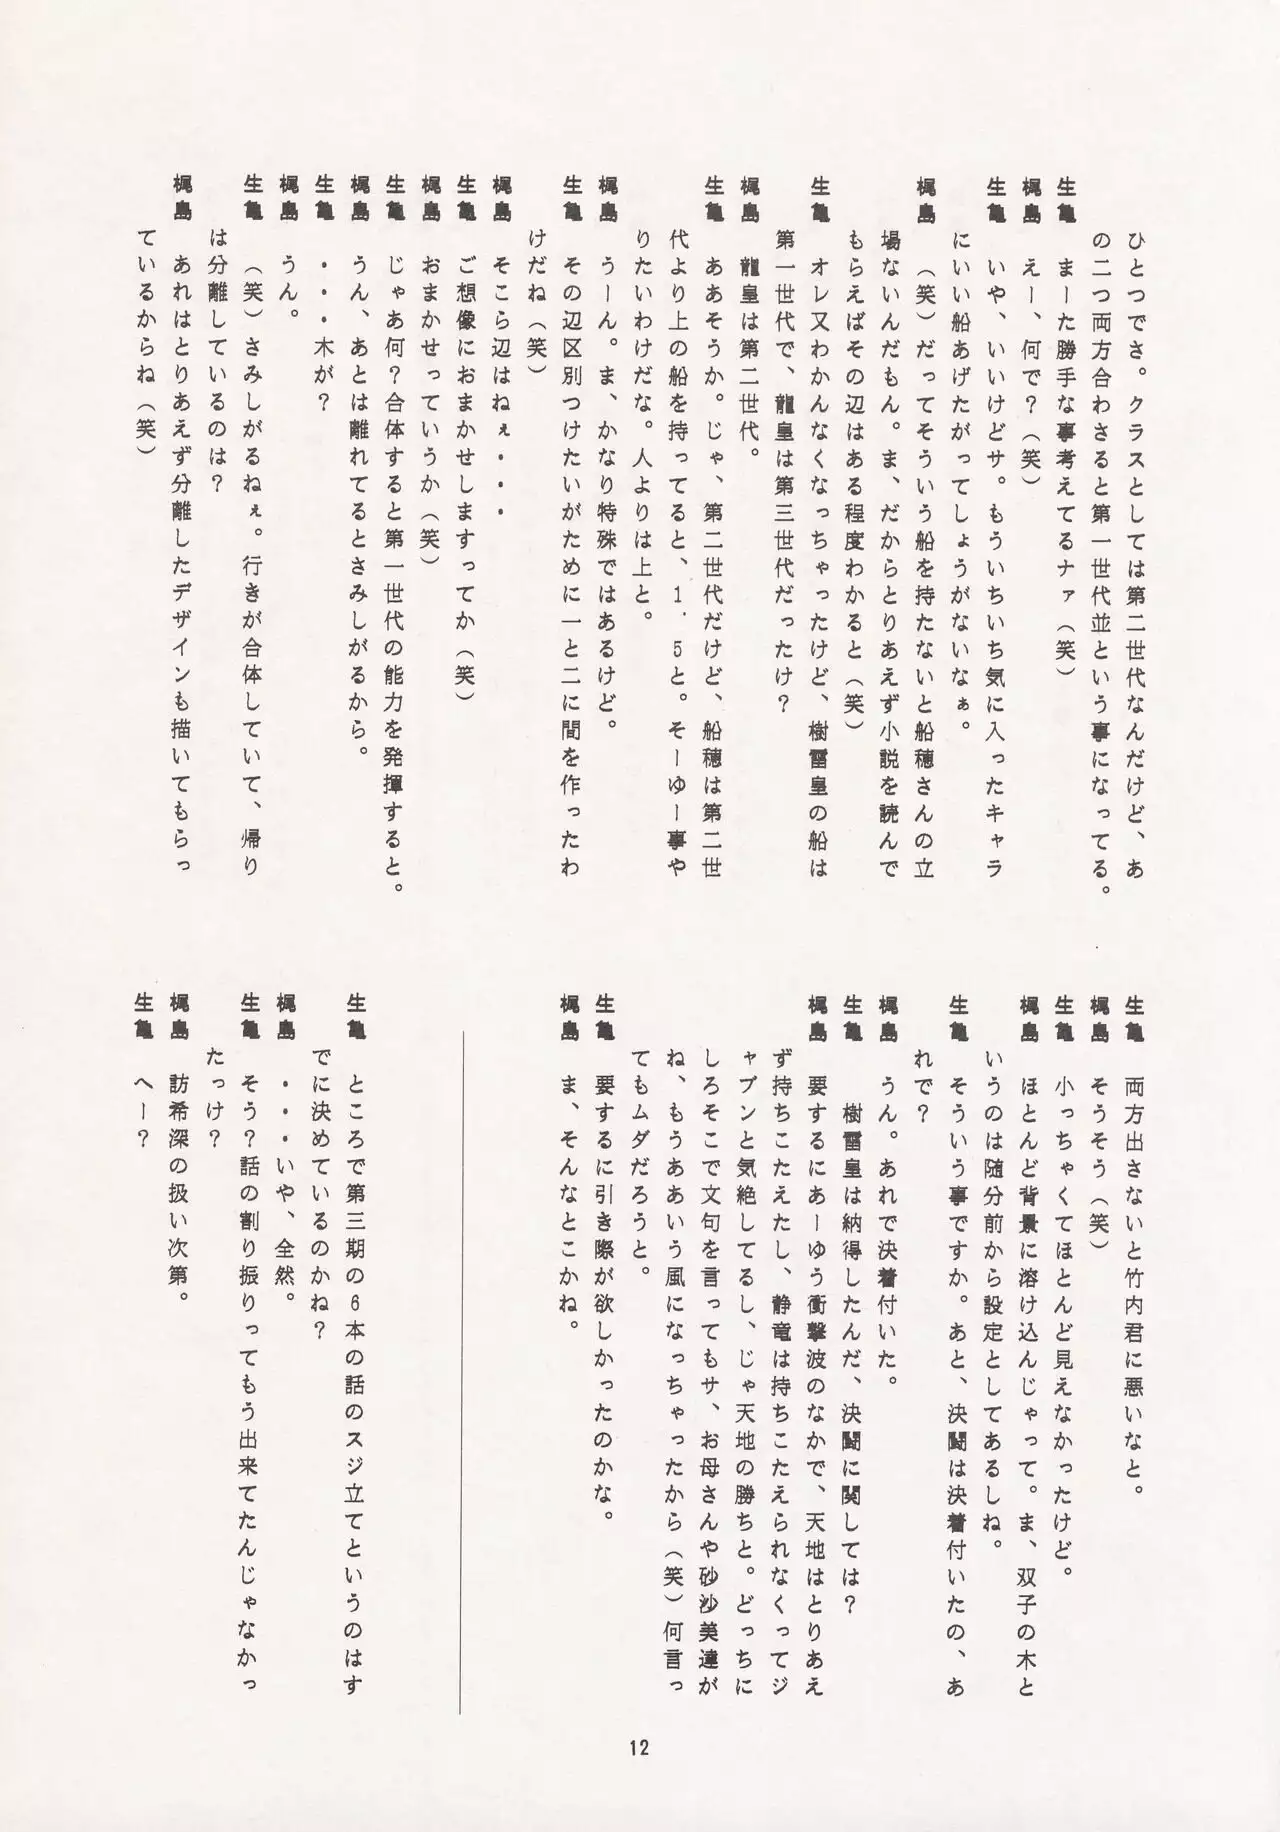 ひとつでさ。クラスとしては第二世代なんだけど、あ
の二つ両方合わさると第一世代並という事になってる。
生亀　まーた勝手な事考えてるナァ（笑）
梶島　えー、何で？（笑）
生亀　いや、いいけどサ。もういちいち気に入ったキャラ
にいい船あげたがってしょうがないなぁ。
梶島　（笑）だってそういう船を持たないと船穂さんの立
場ないんだもん。ま、だからとりあえず小説を読んで
もらえばその辺はある程度わかると（笑）
生亀　オレ又わかんなくなっちゃったけど、樹雷皇の船は
第一世代で、龍皇は第三世代だったけ？
梶島　龍皇は第二世代。
生亀　ああそうか。じゃ、第二世代だけど、船穂は第二世
代より上の船を持ってると、１．５と。そーゆー事や
りたいわけだな。人よりは上と。
梶島　うーん。ま、かなり特殊ではあるけど。
生亀　その辺区別つけたいがために一と二に間を作ったわ
けだね（笑）
梶島　そこら辺はねぇ・・・
生亀　ご想像におまかせしますってか（笑）
梶島　おまかせっていうか（笑）
生亀　じゃあ何？合体すると第一世代の能力を発揮すると。
梶島　うん、あとは離れてるとさみしがるから。
生亀　・・・木が？
梶島　うん。
生亀　（笑）さみしがるねぇ。行きが合体していて、帰り
は分離しているのは？
梶島　あれはとりあえず分離したデザインも描いてもらっ
ているからね（笑）
生亀　両方出さないと竹内君に悪いなと。
梶島　そうそう（笑）
生亀　小っちゃくてほとんど見えなかったけど。
梶島　ほとんど背景に溶け込んじゃって。ま、双子の木と
いうのは随分前から設定としてあるしね。
生亀　そういう事ですか。あと、決闘は決着付いたの、あ
れで？
梶島　うん。あれで決着付いた。
生亀　樹雷皇は納得したんだ、決闘に関しては？
梶島　要するにあーゆう衝撃波のなかで、天地はとりあえ
ず持ちこたえたし、静竜は持ちこたえられなくってジ
ャブンと気絶してるし、じゃ天地の勝ちと。どっちに
しろそこで文句を言ってもサ、お母さんや砂沙美達が
ね、もうああいう風になっちゃったから（笑）何言っ
てもムダだろうと。
生亀　要するに引き際が欲しかったのかな。
梶島　ま、そんなとこかね。
生亀　ところで第三期の６本の話のスジ立てというのはす
でに決めているのかね？
梶島　・・・いや、全然。
生亀　そう？話の割り振りってもう出来てたんじゃなかっ
たっけ？
梶島　訪希深の扱い次第。
生亀　へー？
12